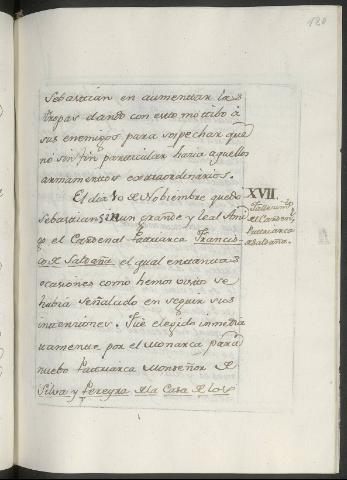 180
Sebastian en aumentar las
tropas dando con esto mottibo à
sus enemigos para sospechar que
no sin fin particular hacia aquellos
armamentos extraordinarios.
El dia 1o de Nobiembre quedo
Sebastian sin un grande y leal Ami
go el Cardenal Patriarca Francis-
co de Saldaña el qual en tantas
ocasiones como hemos visto se
habia señalado en seguir sus
intenciones. Fue elegido inmedia
tamente por el Monarca para
nuebo Patriarca Monseñor de
Silva y Pereyra de la Casa de los
XVII.
del Carden.l
Patriarca
Saldaña.